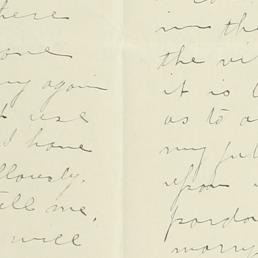 here
one
again
use
I have
tell me,
will
in the
the vi
it is
as to a
my ful
upon
pardo
worry